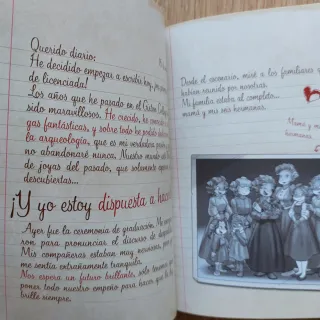 Querido diario:
He decidido empezar a escribir hoy,
de licenciada!
Los años que he pasado en el
sido maravillosos. He crecido, he
gas fantásticas, y sobre todo he podido
la arqueología, que es mi verdadera
no abandonaré nunca. Nuestro mundo está
de joyas del pasado, que solamente esperan
descubiertas...
¡Y yo estoy dispuesta a
Ayer fue la ceremonia de graduación. Me
ron para pronunciar el discurso de despedida
Mis compañeras estaban muy nerviosas, pero yo
me sentía extrañamente tranquila.
Nos espera un futuro brillante, solo tenemos que
poner todo nuestro empeño para hacer que
brille siempre.
Desde el escenario, miré a los familiares
habían reunido por nosotras.
Mi familia estaba al completo...
mamá y mis seis hermanas.
Mamá y mis
hermanas.